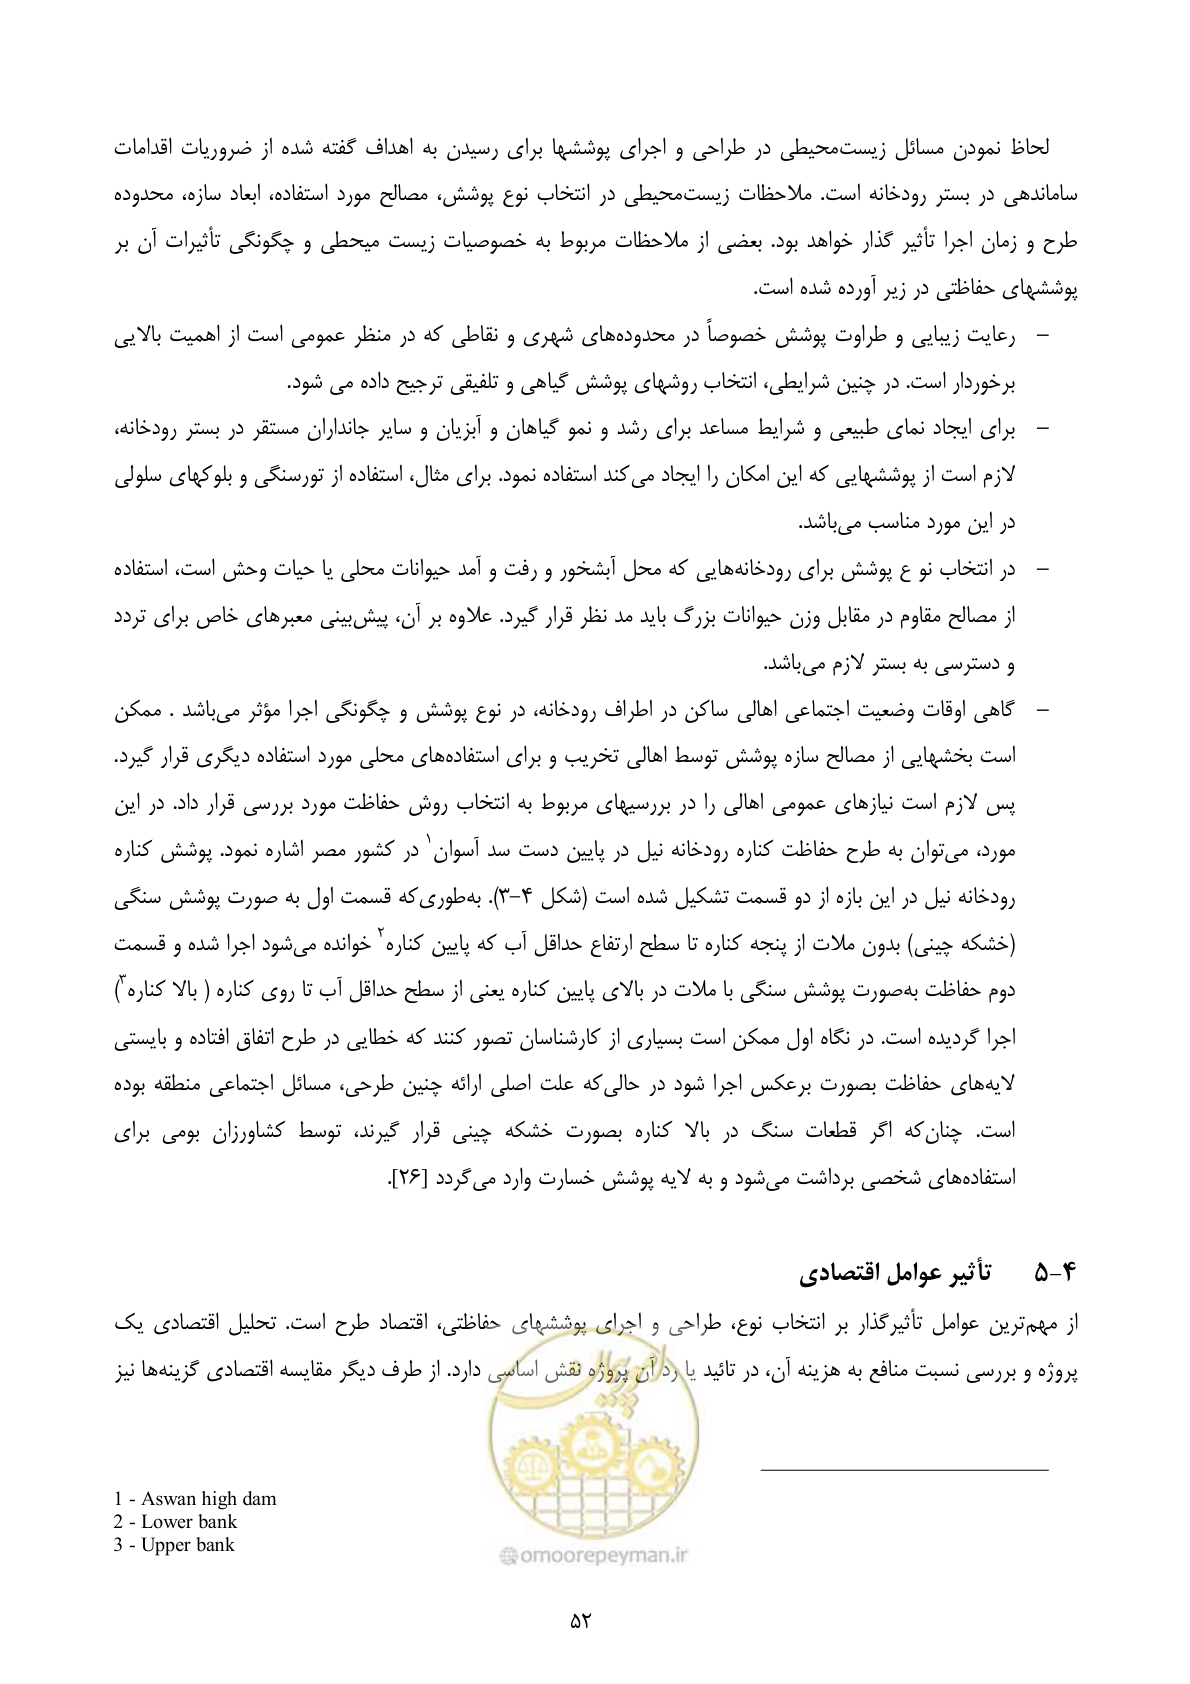 لحاظ نمودن مسائل زیست‌محیطی در طراحی و اجرای پوششها برای رسیدن به اهداف گفته شده از ضروریات اقدامات
ساماندهی در بستر رودخانه است. ملاحظات زیست‌محیطی در انتخاب نوع پوشش، مصالح مورد استفاده، ابعاد سازه، محدوده
طرح و زمان اجرا تأثیر گذار خواهد بود. بعضی از ملاحظات مربوط به خصوصیات زیست میحطی و چگونگی تأثیرات آن بر
پوششهای حفاظتی در زیر آورده شده است.
– رعایت زیبایی و طراوت پوشش خصوصاً در محدوده‌های شهری و نقاطی که در منظر عمومی است از اهمیت بالایی
برخوردار است. در چنین شرایطی، انتخاب روشهای پوشش گیاهی و تلفیقی ترجیح داده می شود.
– برای ایجاد نمای طبیعی و شرایط مساعد برای رشد و نمو گیاهان و آبزیان و سایر جانداران مستقر در بستر رودخانه،
لازم است از پوششهایی که این امکان را ایجاد می‌کند استفاده نمود. برای مثال، استفاده از تورسنگی و بلوکهای سلولی
در این مورد مناسب می‌باشد.
– در انتخاب نو ع پوشش برای رودخانه‌هایی که محل آبشخور و رفت و آمد حیوانات محلی یا حیات وحش است، استفاده
از مصالح مقاوم در مقابل وزن حیوانات بزرگ باید مد نظر قرار گیرد. علاوه بر آن، پیش‌بینی معبرهای خاص برای تردد
و دسترسی به بستر لازم می‌باشد.
– گاهی اوقات وضعیت اجتماعی اهالی ساکن در اطراف رودخانه، در نوع پوشش و چگونگی اجرا مؤثر می‌باشد . ممکن
است بخشهایی از مصالح سازه پوشش توسط اهالی تخریب و برای استفاده‌های محلی مورد استفاده دیگری قرار گیرد.
پس لازم است نیازهای عمومی اهالی را در بررسیهای مربوط به انتخاب روش حفاظت مورد بررسی قرار داد. در این
مورد، می‌توان به طرح حفاظت کناره رودخانه نیل در پایین دست سد آسوان۱ در کشور مصر اشاره نمود. پوشش کناره
رودخانه نیل در این بازه از دو قسمت تشکیل شده است (شکل ۴-۳). به‌طوری‌که قسمت اول به صورت پوشش سنگی
(خشکه چینی) بدون ملات از پنجه کناره تا سطح ارتفاع حداقل آب که پایین کناره۲ خوانده می‌شود اجرا شده و قسمت
دوم حفاظت به‌صورت پوشش سنگی با ملات در بالای پایین کناره یعنی از سطح حداقل آب تا روی کناره ( بالا کناره۳)
اجرا گردیده است. در نگاه اول ممکن است بسیاری از کارشناسان تصور کنند که خطایی در طرح اتفاق افتاده و بایستی
لایه‌های حفاظت بصورت برعکس اجرا شود در حالی‌که علت اصلی ارائه چنین طرحی، مسائل اجتماعی منطقه بوده
است. چنان‌که اگر قطعات سنگ در بالا کناره بصورت خشکه چینی قرار گیرند، توسط کشاورزان بومی برای
استفاده‌های شخصی برداشت می‌شود و به لایه پوشش خسارت وارد می‌گردد [۲۶].
۴-۵ تأثیر عوامل اقتصادی
از مهم‌ترین عوامل تأثیرگذار بر انتخاب نوع، طراحی و اجرای پوششهای حفاظتی، اقتصاد طرح است. تحلیل اقتصادی یک
پروژه و بررسی نسبت منافع به هزینه آن، در تائید یا رد آن پروژه نقش اساسی دارد. از طرف دیگر مقایسه اقتصادی گزینه‌ها نیز
امور پیمان
1 - Aswan high dam
2 - Lower bank
3 - Upper bank
@omoorepeyman.ir
۵۲